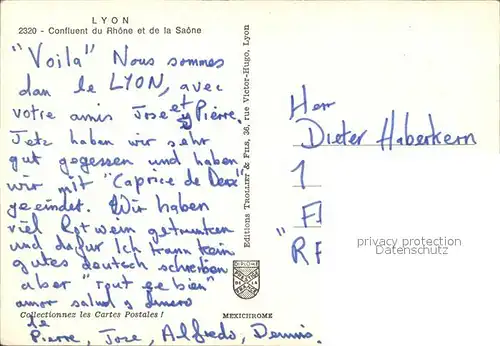 LYON
2320 - Confluent du Rhône et de la Saône
"Voila" Nous sommes
dan le LYON, avec
votre amis Jose et Pierre.
Jetz haben wir sehr
gut gegessen und haben
wir mit "Caprice de Deux"
geeindet. Wir haben
viel Rotwein getrunken
und dafur Ich kann kein
gutes deutsch schreiben
aber "tout ge bien"
amor salud y dinero
de
Pierre, Jose, Alfredo, Dennis.
Collectionnez les Cartes Postales !
Editions TROLLIET & Fils, 36, rue Victor-Hugo, Lyon
MEXICHROME
Herr
Dieter Haberkern
1
privacy protection
Datenschutz